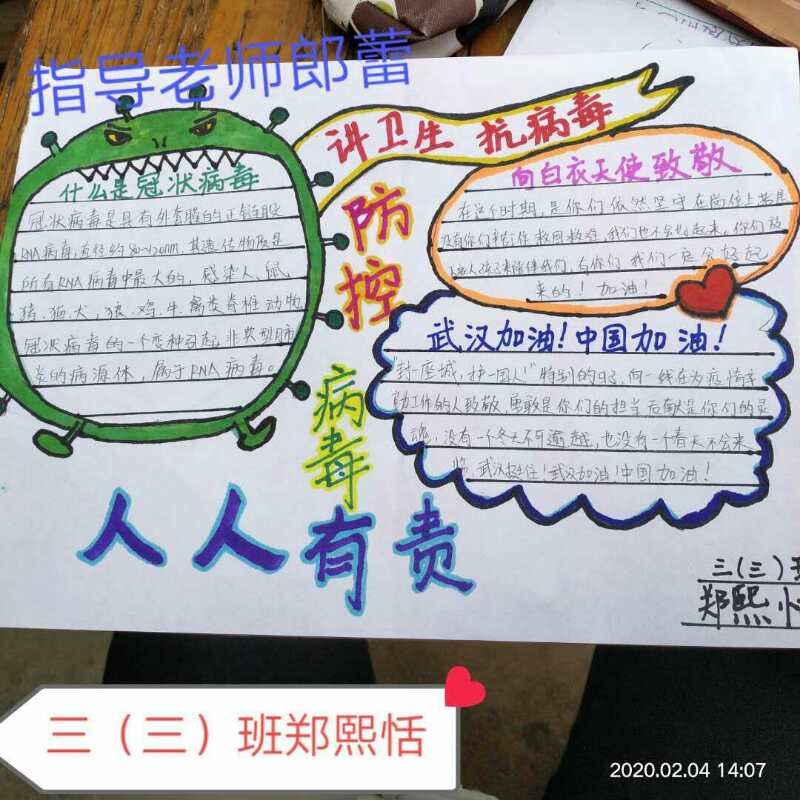 指导老师郎蕾
讲卫生 抗病毒
什么是冠状病毒
冠状病毒是具有外套膜的正链股
RNA病毒,直径约80~120nm,其遗传物质是
所有RNA病毒中最大的,感染人、鼠、
猪、猫、犬、狼、鸡、牛、禽类脊椎动物
冠状病毒的一个变种引起非典型肺
炎的病源体,属于RNA病毒。
防控
病毒
人人有责
向白衣天使致敬
在这个时期,是你们依然坚守在岗位上若是
没有你们我们
我们也不会好起来。你们
有你们 我们一定会好起
来的!加油!
武汉加油!中国加油!
"封一座城,护一国人"特别的
向一线在为疫情辛
勤工作的人致敬,勇敢是你们的担当 奉献是你们的灵
魂,没有一个冬天不可逾越,也没有一个春天不会来
临,武汉挺住!武汉加油!中国加油!
三(三)班
郑熙恬
三(三)班郑熙恬
2020.02.04 14:07